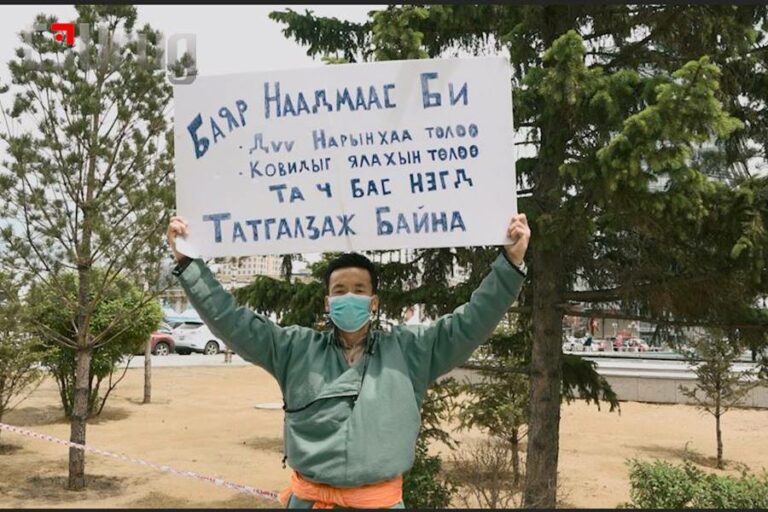 Баяр Наадмаас Би
· Дүү Нарынхаа төлөө
· Ковидыг ялахын төлөө
Та ч бас нэгд
Татгалзаж Байна